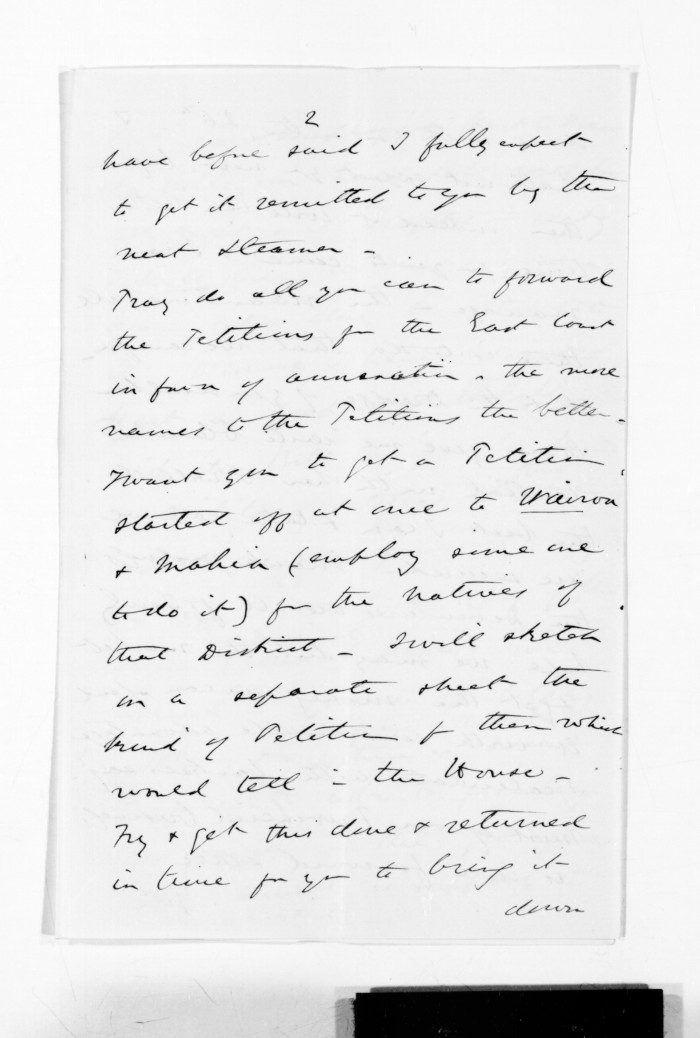 2
have before said I fully expect
to get it remitted to you by the
next steamer -
Pray do all you can to forward
the Petitions for the East Coast
in favor of annexation. the more
names to the Petitions the better.
I want you to get a Petition
started off at once to Wairoa
& Mahia (employ some one
to do it) for the natives of
that District - I will sketch
on a separate sheet the
kind of Petition for them which
would tell in the House -
Try & get this done & returned
in time for you to bring it
down